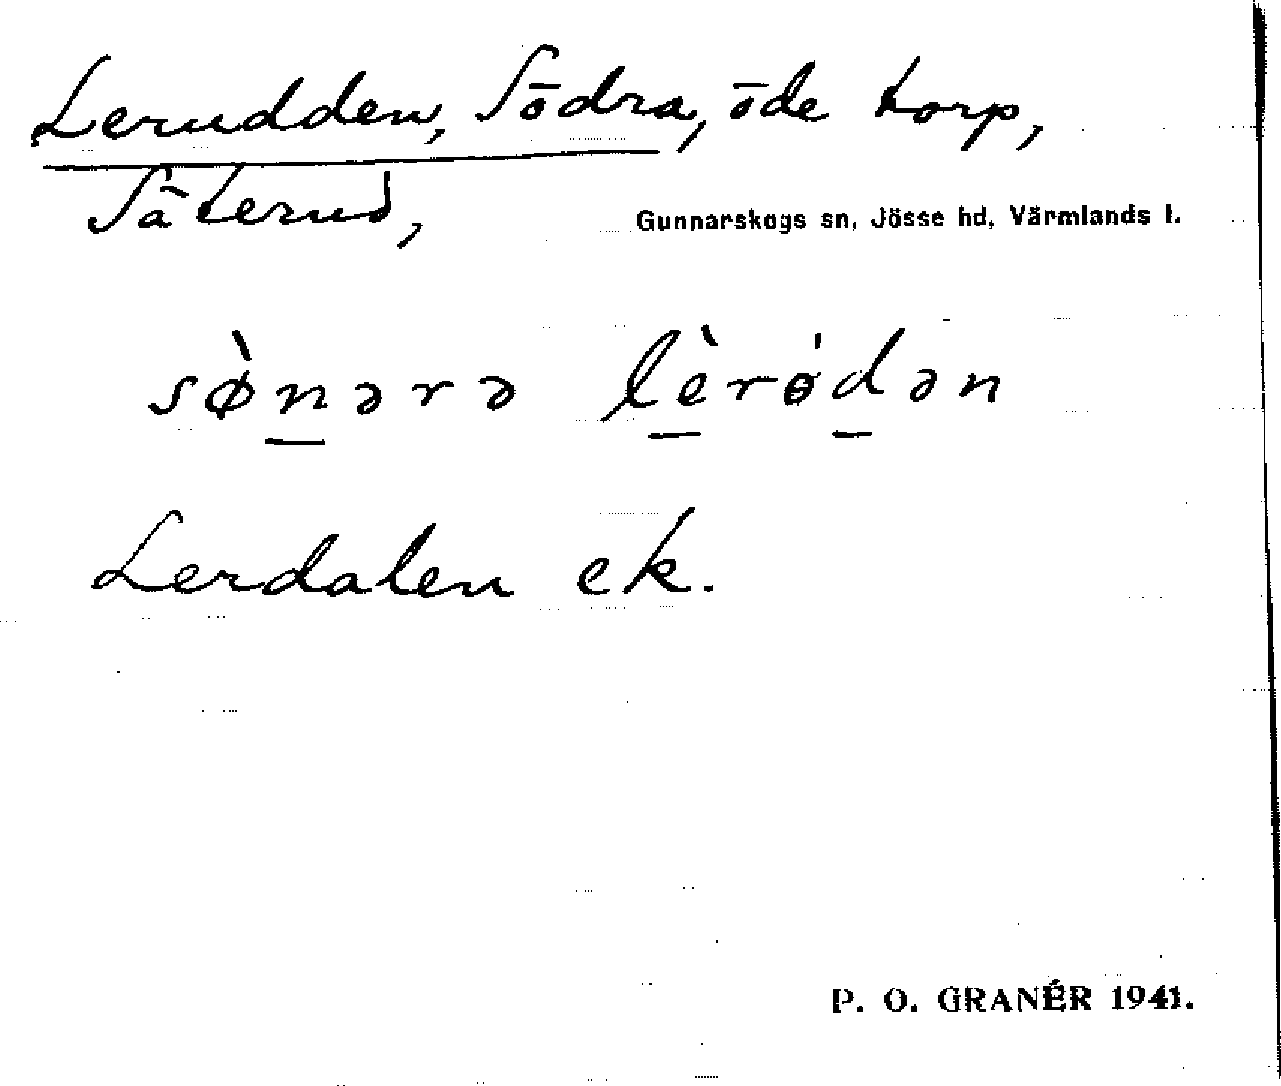 Lerudden, Södra, öde torp,
Säterud,
Gunnarskogs sn, Jösse hd, Värmlands l.
sø̀nərə lèrɵ́dən
Lerdalen ek.
P. O. GRANÉR 1941.